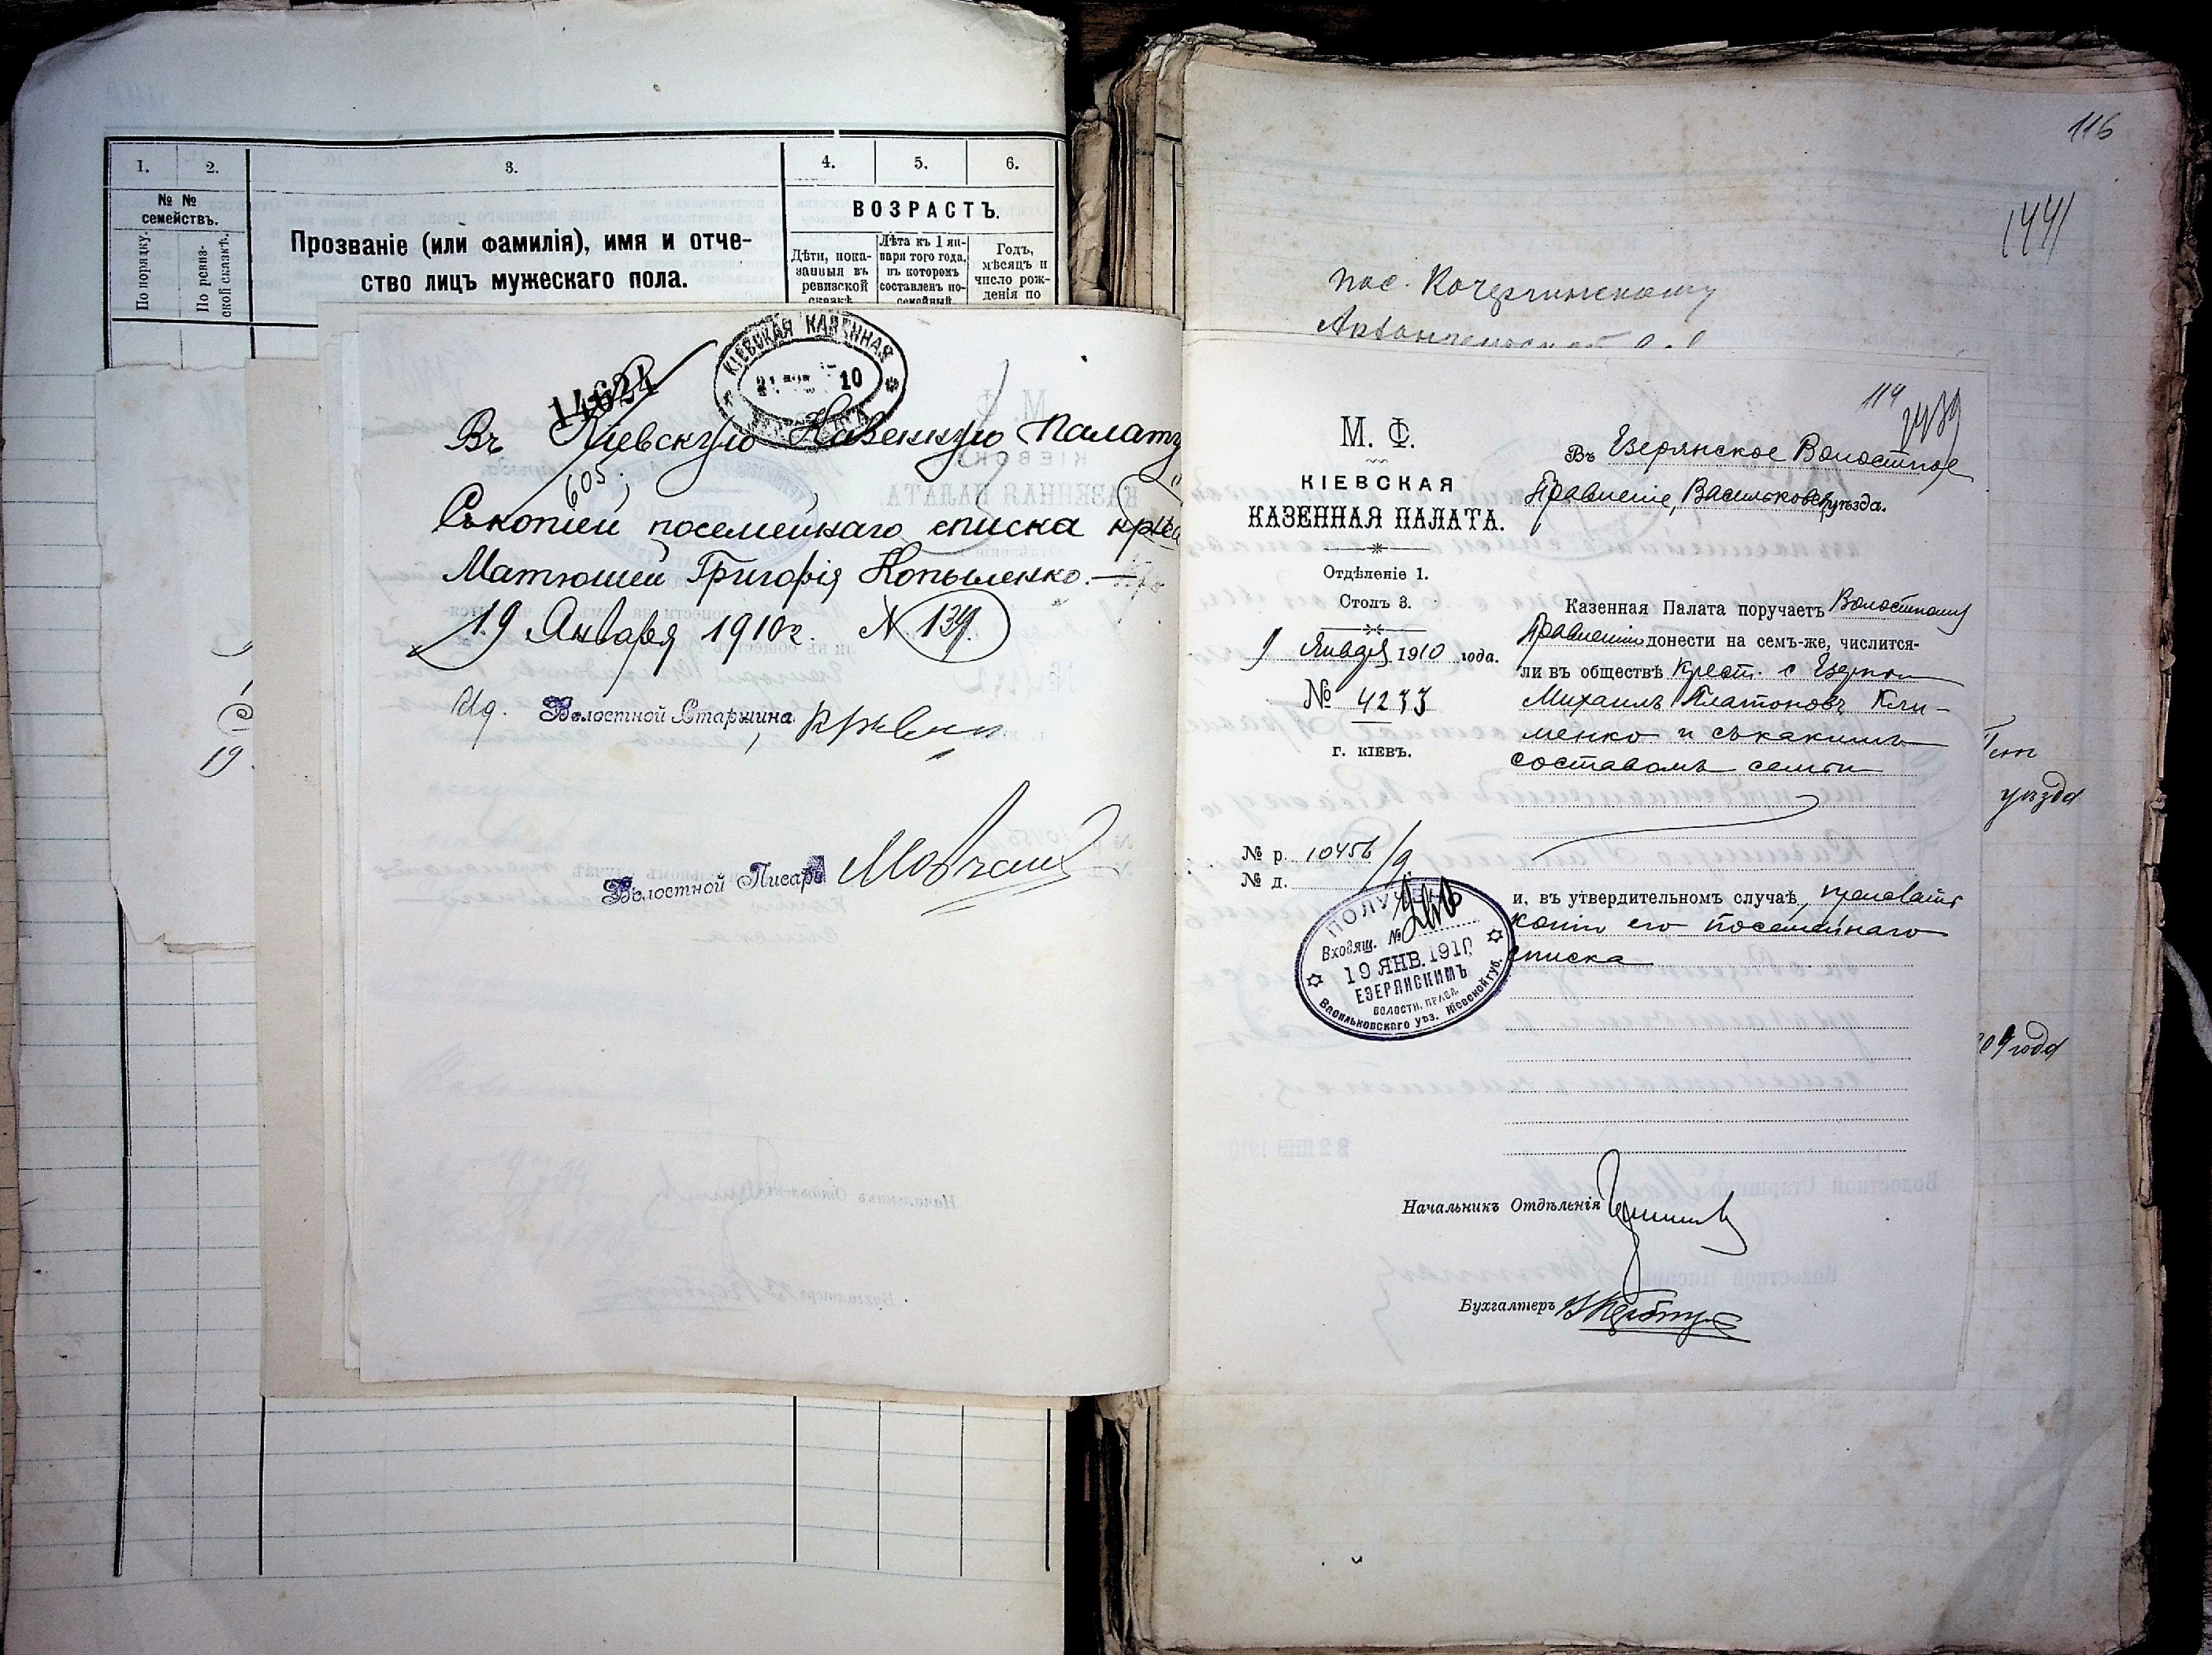 1.
2.
3.
4.
5.
6.
№ №
семействъ.
По порядку.
По ревиз-
ской сказкѣ.
Прозваніе (или фамилія), имя и отче-
ство лицъ мужескаго пола.
ВОЗРАСТЪ.
Дѣти, пока-
занныя въ
ревизской
сказкѣ
Лѣта къ 1 ян-
варя того года,
въ которомъ
составленъ по-
семейный
Годъ,
мѣсяцъ и
число рож-
денія по
19
14624
КІЕВСКАЯ КАЗЕННАЯ
10
Въ Кіевскую Казенную Палату
605
Съ копіей посемейнаго списка
Матюшей Григорія Копыленко.—
19 Января 1910 г. № 139.
Волостной Старшина
Волостной Писарь
116
1441
пос. Кочержинскому
уѣзда
09 года
114
М. Ф.
КІЕВСКАЯ
КАЗЕННАЯ ПАЛАТА.
Отдѣленіе 1.
Столъ 3.
9 Января 1910 года.
№ 4233
г. КІЕВЪ.
№ р. 10456/9
№ д.
Въ Езерянское Волостное
Правленіе, Васильков. уѣзда.
Казенная Палата поручаетъ Волостному
Правленію донести на семъ-же, числится-
ли въ обществѣ крест. с. Езерян
Михаилъ Платоновъ Кли-
менко и съ какимъ
составомъ семьи
и, въ утвердительномъ случаѣ, прислать
копію его посемейнаго
списка
ПОЛУЧЕНО
Входящ. №
19 ЯНВ. 1910
ЕЗЕРЯНСКИМЪ
ВОЛОСТН. ПРАВЛ.
Васильковскаго уѣз. Кіевской губ.
Начальникъ Отдѣленія
Бухгалтеръ